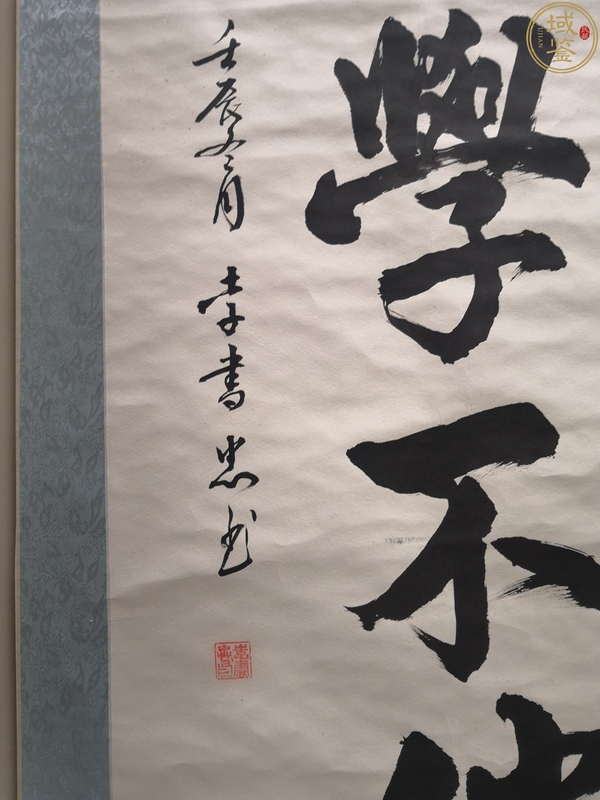 學不
壬辰冬月 李書忠书
域鉴
YUJIAN